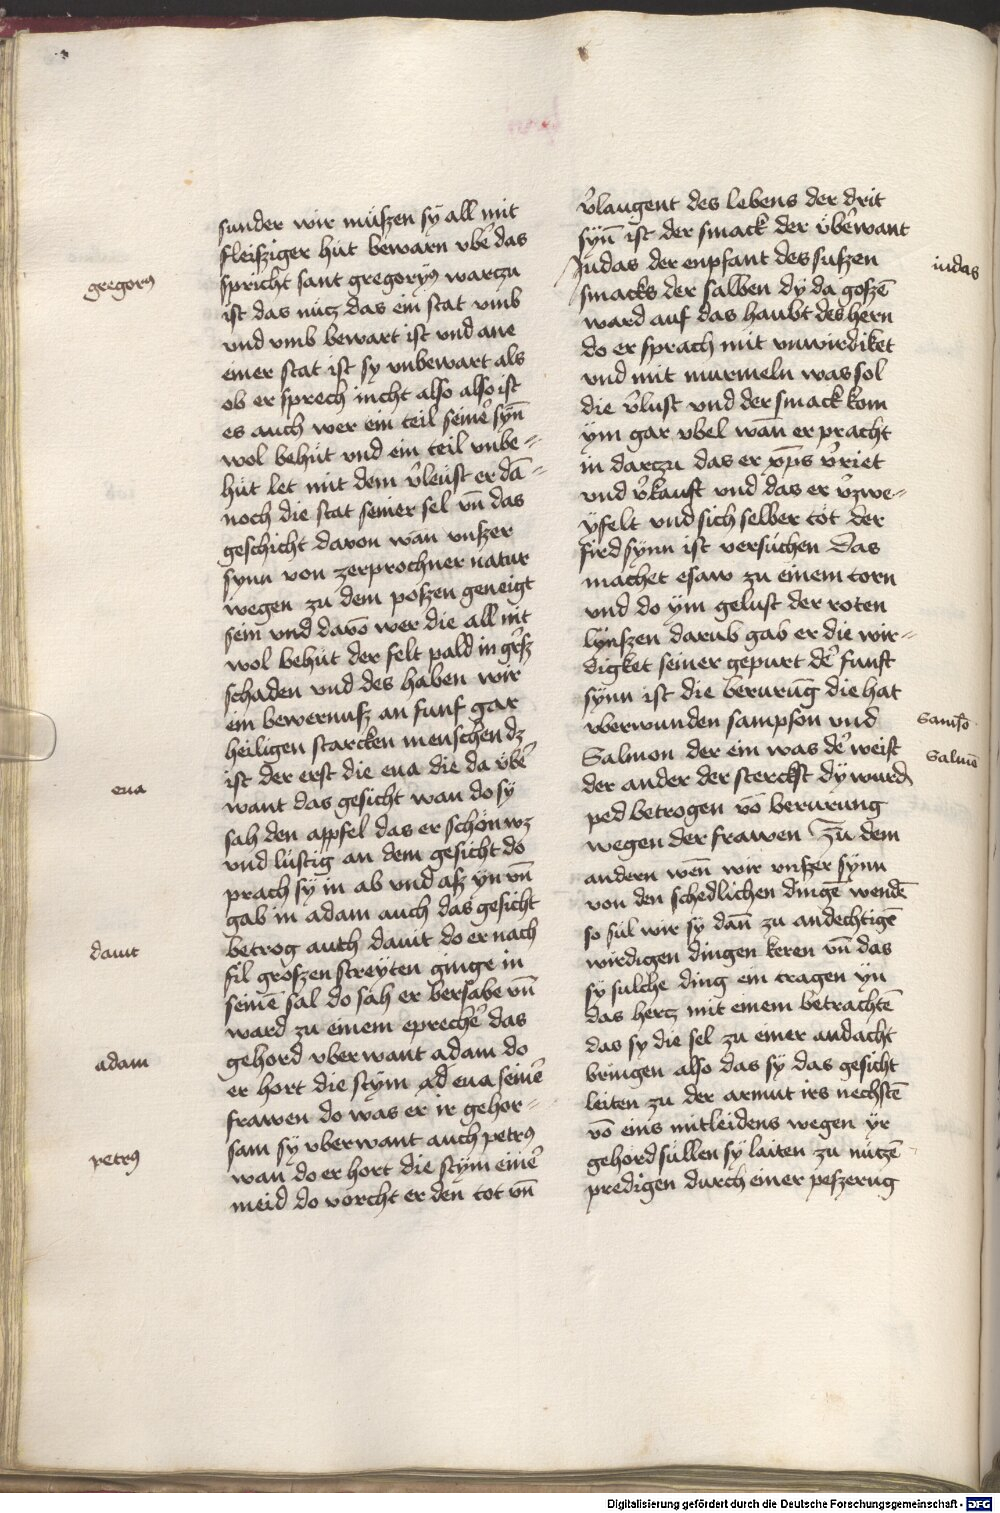 sunder wir müßzen sÿ all mit
fleisziger hüt bewarn vbe᷑ das
gregorꝰ
spricht sant gregoryꝰ warczu
ist das nücz das ein stat vmb
vnd vmb bewart ist vnd ane
einer stat ist sy vnbewart als
ob er sprech nicht also also ist
es auch wer ein teil seine᷑ syn̄
wol behüt vnd ein teil vnbe⸗
hüt let mit dem v᷑leüst er dā⸗
noch die stat seiner sel vn̄ das
geschicht davon wan vnßer
synn von zerprochner natur
wegen zu dem poßzen geneigt
sein vnd davō wer die all nit
wol behüt der felt pald in gr᷑sz
schaden vnd des haben wir
ein bewernusz an funf gar
heiligen starcken menschen dz
ist der erst die eua die da vbe᷑
eua
want das gesicht wan do sÿ
sah den appfel das er schön wz
vnd lüstig an dem gesicht do
prach sÿ in ab vnd asz yn vn̄
gab in adam auch das gesicht
dauit
betrog auch dauit do er nach
fil groszen streÿten ginge in
seinē sal do sah er bersabe vn̄
ward zu einem eprechē᷑ das
gehord vberwant adam do
adam
er hort die stÿm ad eua seine᷑
frawen do was er ir gehor⸗
sam sÿ vberwant auch petrꝰ
petrꝰ
wan do er hort die stÿm eine᷑
meid do vorcht er den tot vn̄
v᷑laugent des lebens der drit
syn̄ ist der smack der vbe᷑want
Judas der enpfant des sußzen
iudas
smacks der salben dÿ da goszē
ward auf das haubt des hern
do er sprach mit vnwirdiket
vnd mit murmeln was sol
die v᷑lust vnd der smack kom
ÿm gar vbel wan̄ er pracht
in darczu das er xp̄s v᷑riet
vnd v᷑kauft vnd das er v᷑zwe⸗
ÿfelt vnd sich selber töt der
fird synn ist versüchen das
machet esaw zu einem torn
vnd do ÿm gelust der roten
lynßzen darub gab er die wir⸗
digket seiner gepurt de᷑ funft
synn ist die berurūg die hat
vberwunden sampson vnd
Samso
Salmon der ein was de᷑ weist
Salmē
der ander der sterckst dÿ wurdn
ped betrogen vō berurung
wegen der frawen Zu dem
andern wen̄ wir vnßer synn
von den schedlichen dingē wendē
so sül wir sÿ dan̄ zu andechtigē
wirdigen dingen keren vn̄ das
sÿ sülche ding ein tragen yn
das hercz mit einem betrachtē
das sy die sel zu einer andacht
bringen also das sÿ das gesicht
leiten zu der armut irs nechstē
vō eins mitleidens wegen ÿr
gehord süllen sÿ laiten zu nüczē
predigen durch einer peszerūg
Digitalisierung gefördert durch die Deutsche Forschungsgemeinschaft - DFG